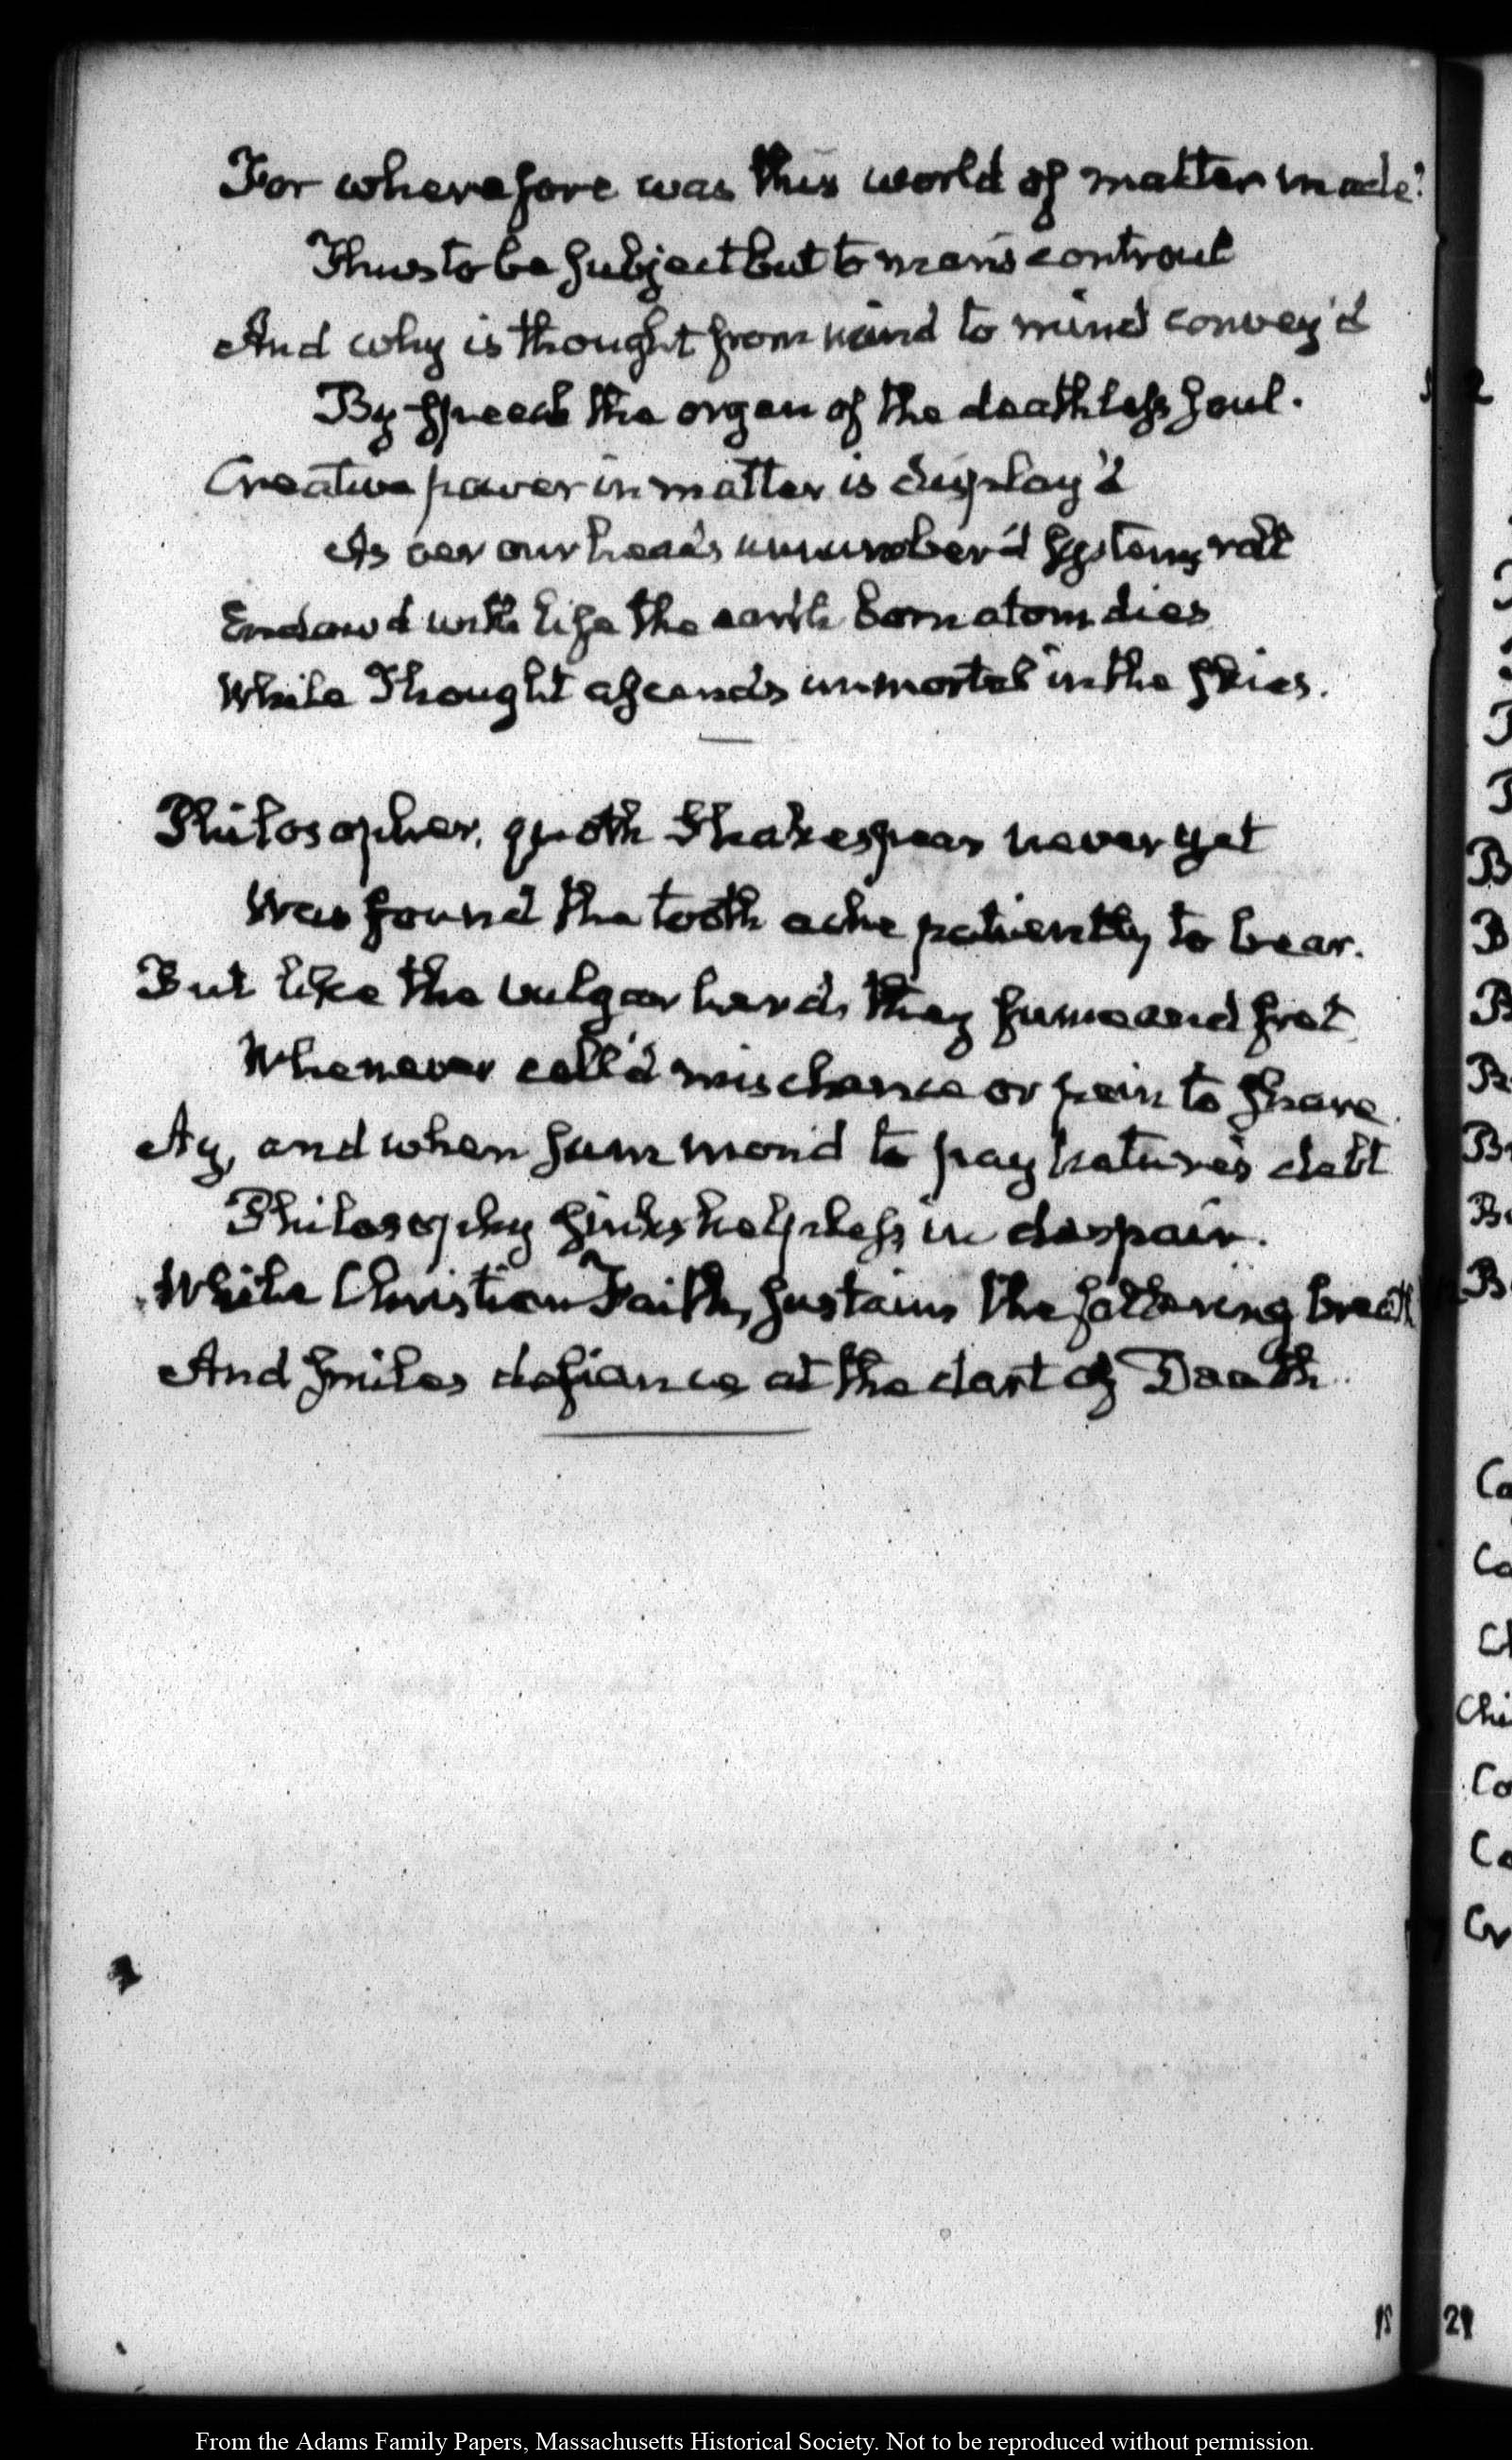 For wherefore was this world of matter made?
Thus to be subject but to man's controul
And why is thought from mind to mind convey'd
By speech the organ of the deathless soul.
Creative power in matter is display'd
As oer our heads unnumber'd systems roll
Endow'd with life the earth born atom dies
While Thought ascends immortal in the skies.
Philosopher, quoth Shakespear never yet
Was found the tooth ache patiently to bear.
But like the vulgar herds they fume and fret
Whenever call'd mischance or pain to share
Ay, and when summon'd to pay nature's debt
Philosophy sinks helpless in despair.
While Christian Faith, sustains the faltering breath
And smiles defiance at the dart of Death.
B
B
B
B
B
B
B
Ca
Co
Cl
Chi
Co
Co
Cr
21
From the Adams Family Papers, Massachusetts Historical Society. Not to be reproduced without permission.